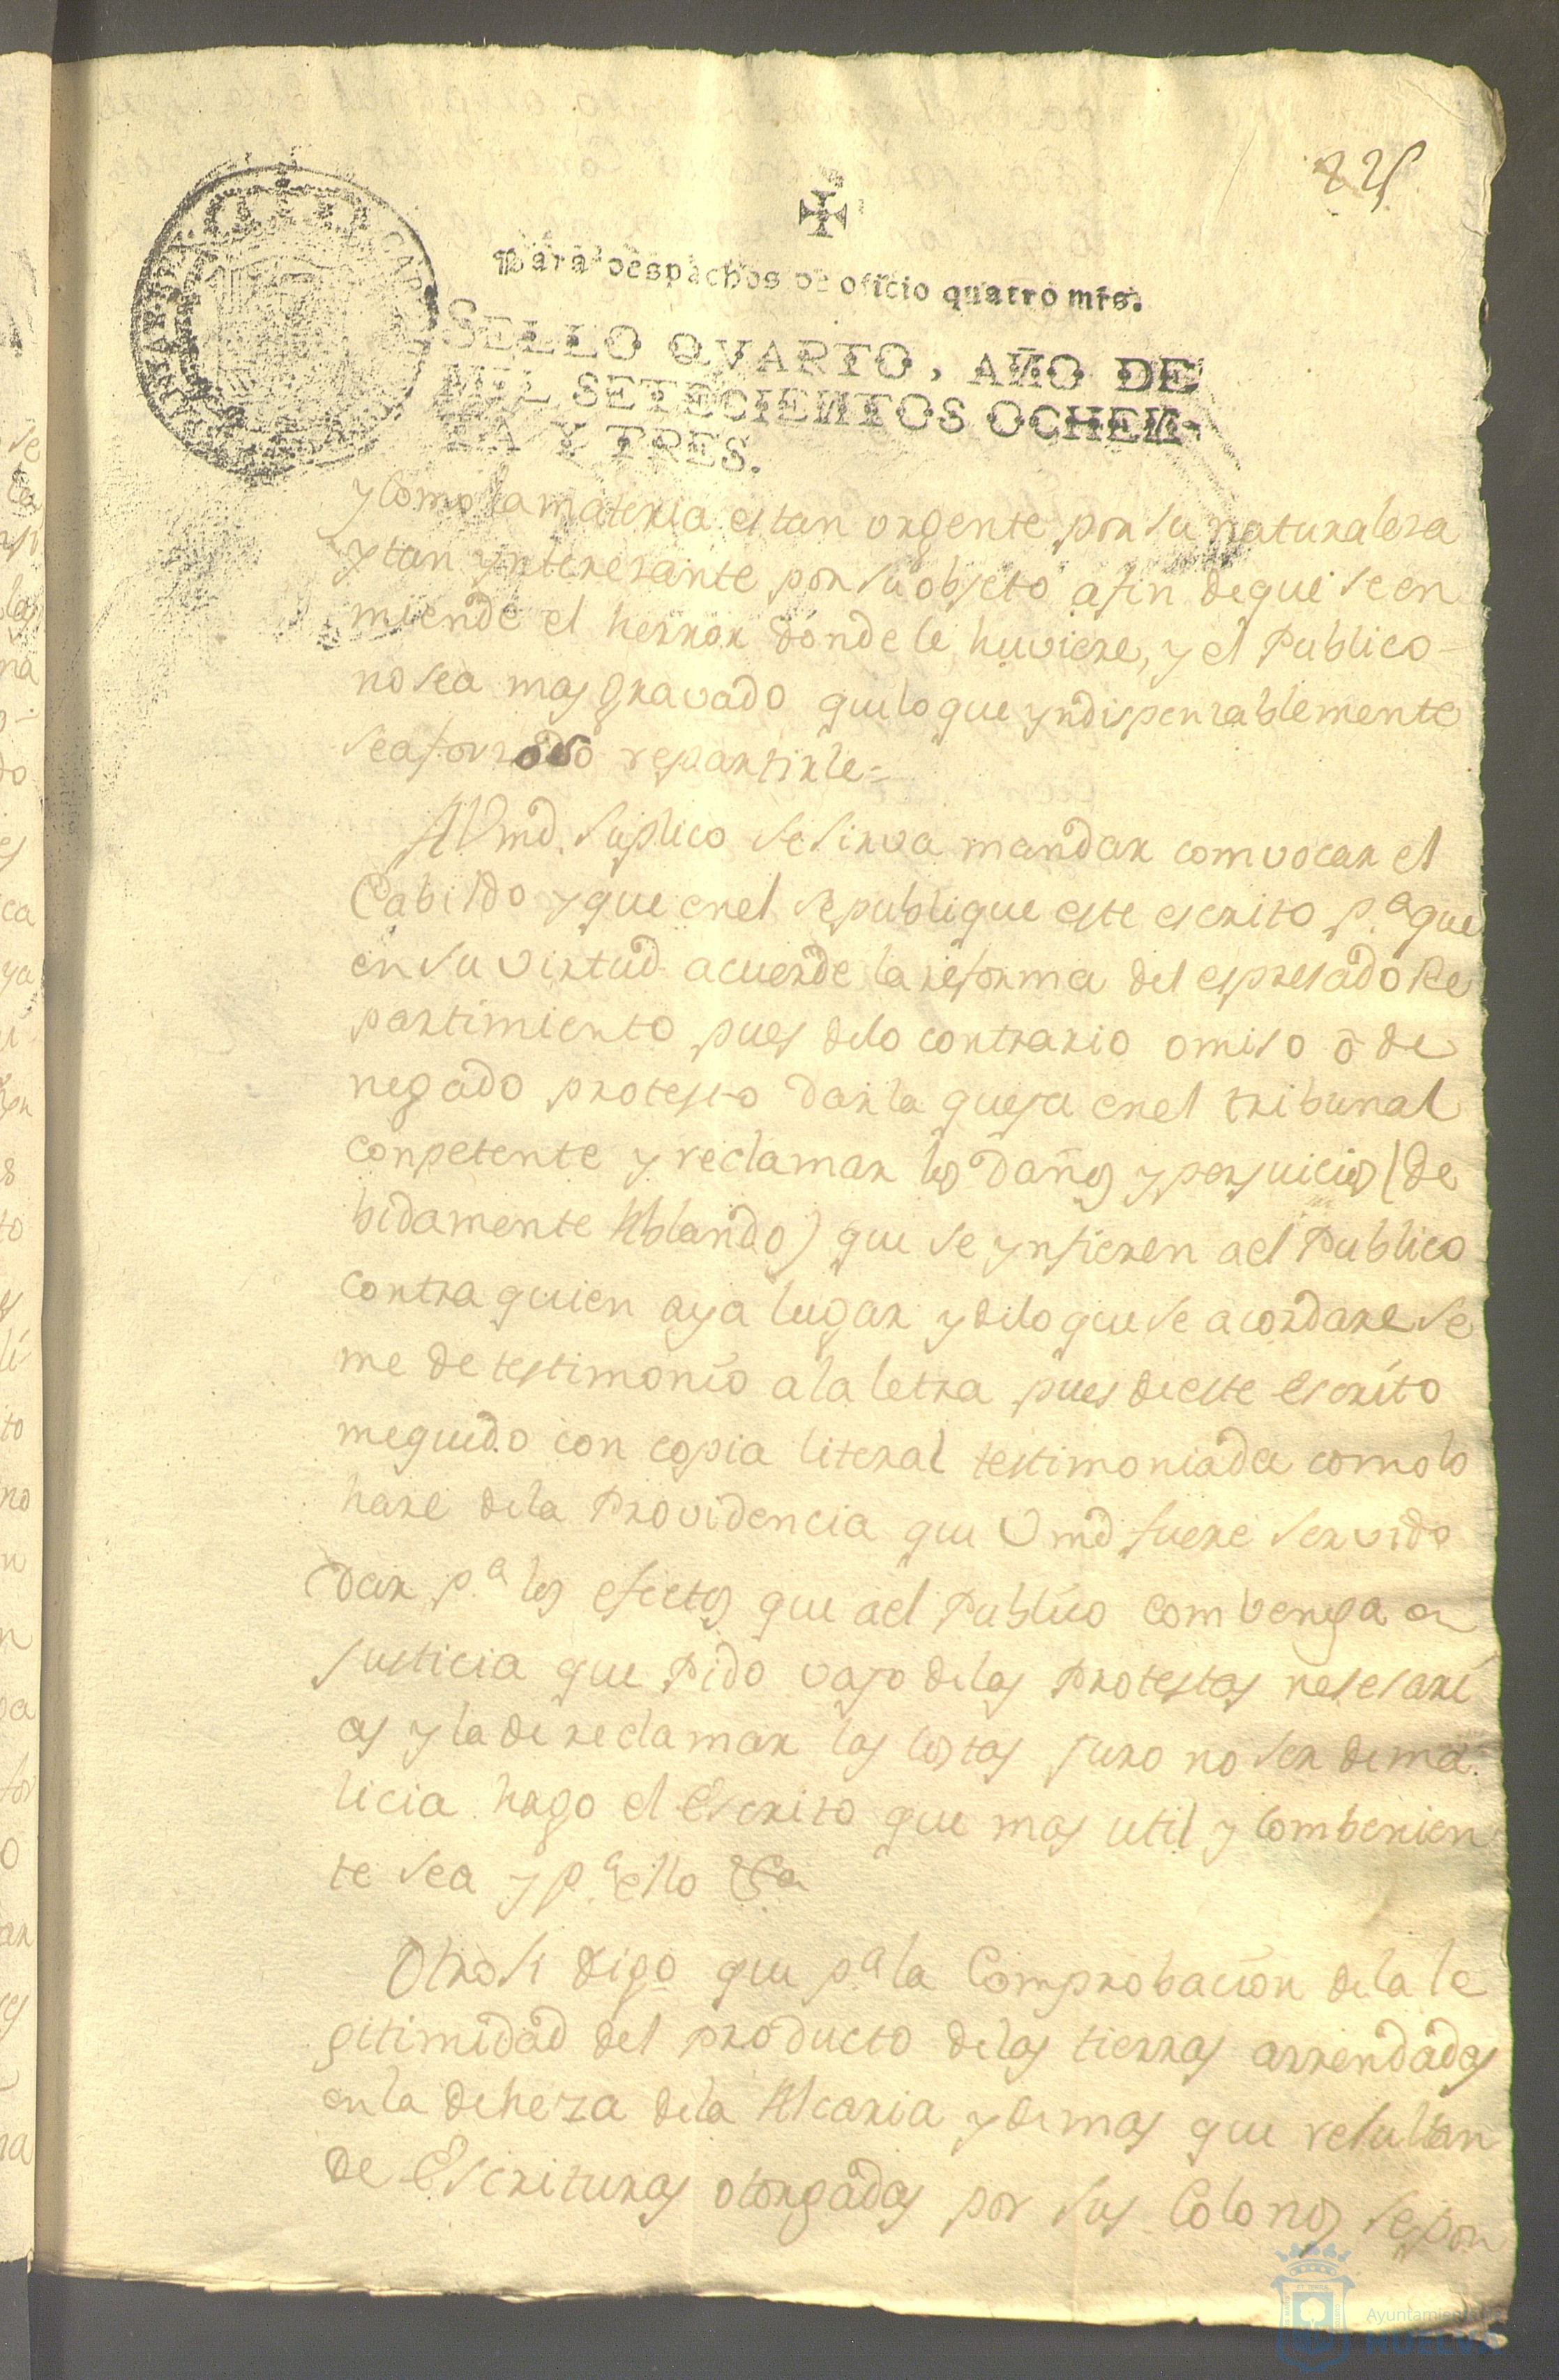 225
Para despachos de oficio quatro mrs.
SELLO QVARTO, AÑO DE
MIL SETECIENTOS OCHEN-
TA Y TRES.
y como la materia es tan urgente por su naturalesa
y tan ynteresante por su objeto afin de que se en
miende el herror donde le huviere, y el Publico
no sea mas gravado que lo que yndispensablemente
sea forzoso repartirle=
A Vmd. suplico se sirva mandar comvocar el
Cabildo y que en el se publique este escrito p.ª que
en su virtud acuerde la reforma del espresado Re
partimiento pues delo contrario omiso ô de
negado protesto dar la queja en el tribunal
conpetente y reclamar los daños y perjuicios (de
bidamente Ablando) que se ynfieren ael Publico
contra quien aya lugar y delo que se acordare se
me de testimonio a la letra pues de este escrito
me quedo con copia literal testimoniada como lo
hare dela Providencia que Vmd fuere servido
dar p.ª los efectos que ael Publico combenga en
Justicia que Pido vajo delas Protestas nesesari
as y la de reclamar las costas juro no ser de ma
licia hago el Escrito que mas util y combenien
te sea y p.ª ello &a
Otrosi digo que p.ª la Comprobacion dela le
gitimidad del producto delas tierras arrendadas
en la deheza dela Alcaria y demas que resultan
de Escrituras otorgadas por sus Colonos se pon
Ayuntamiento
HUELVA